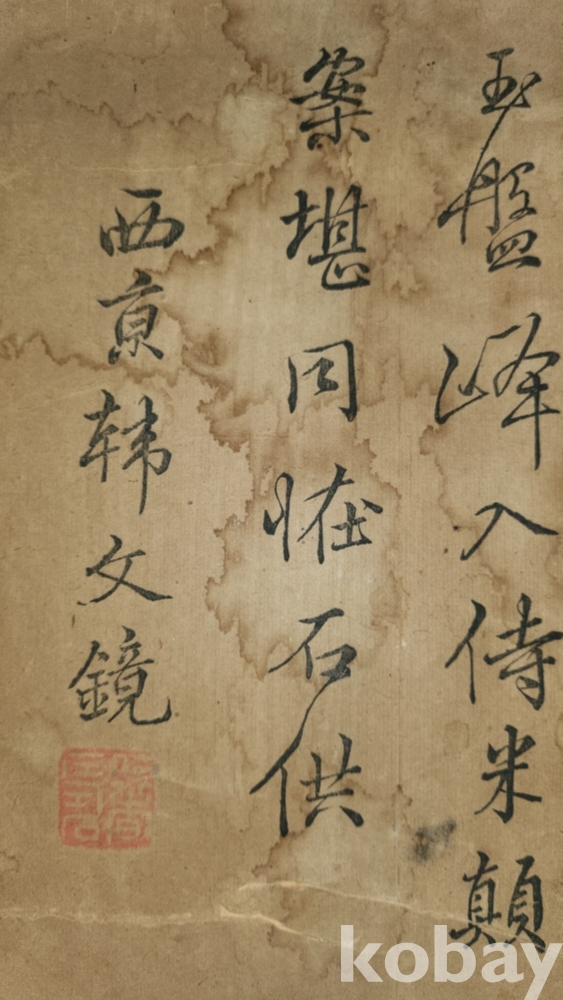 玉盤峰入侍米顛
案堪同怪石供
西京韩文鏡
kobay